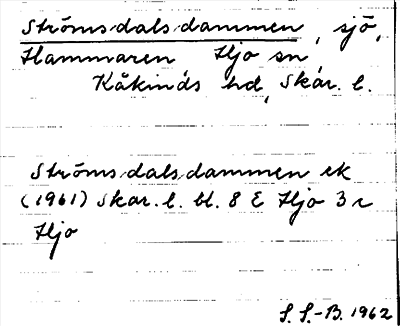 Ströms/dals/dammen, sjö,
Hammaren Hjo sn,
Kåkinds hd, Skar. l.
Ströms/dals/dammen ek
(1961) Skar. l. bl. 8 E Hjo 3 r
Hjo
S. S.-B. 1962